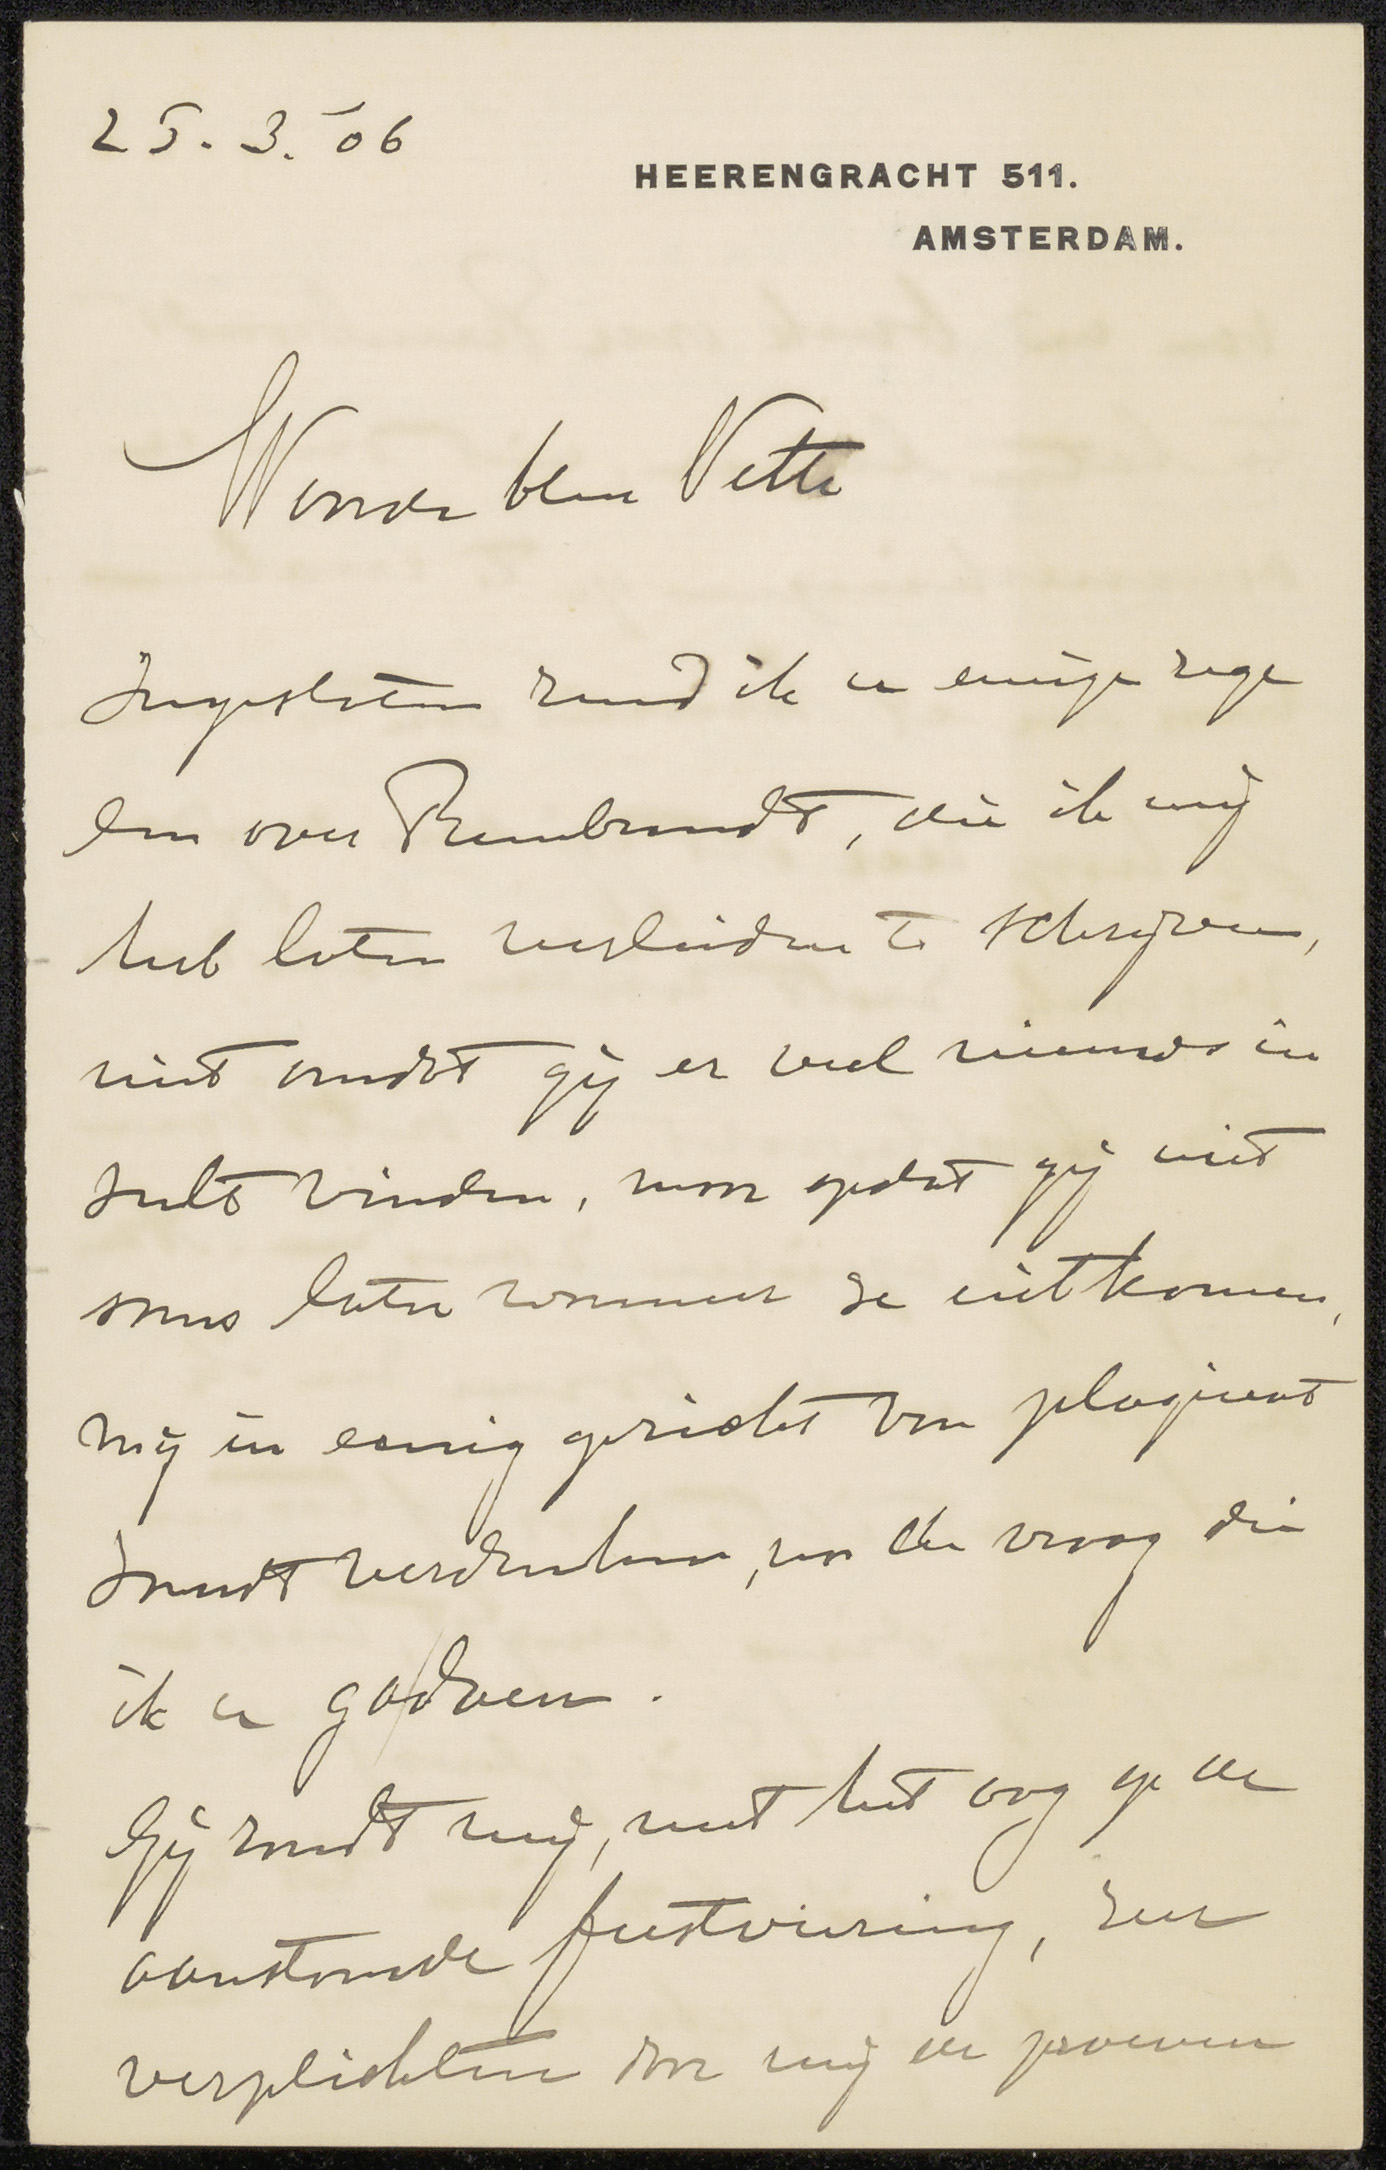 25.3.'06
HEERENGRACHT 511.
AMSTERDAM.
Waarde heer Veth
Ingesloten zend ik u eenige rege
len over Rembrandt, die ik mij
heb laten verleiden te schrijven,
niet omdat gij er veel nieuws in
zult vinden, maar opdat gij niet
soms later wanneer ze uitkomen,
mij in eenig opzicht van plagiaat
zoudt verdenken, na de vraag die
ik u ga doen.
Gij zoudt mij, met het oog op de
aanstaande feestviering, zeer
verplichten door mij de proeven